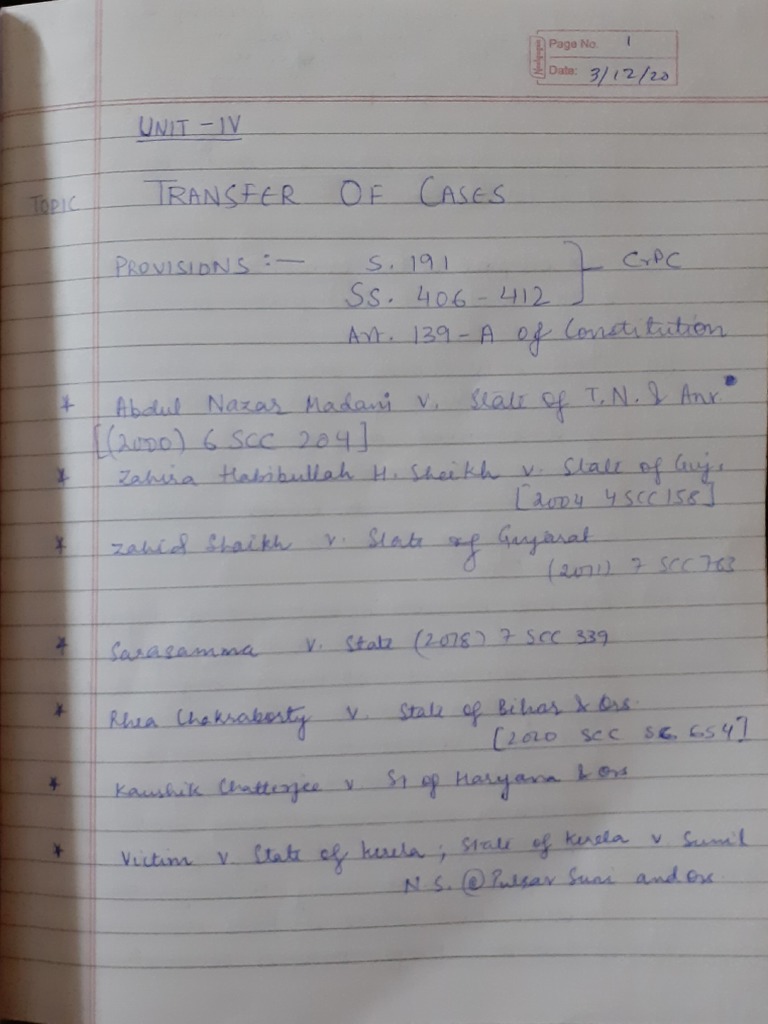 Page No. 1
Date: 3/12/20
UNIT - IV
TOPIC TRANSFER OF CASES
PROVISIONS :— S. 191 CrPC
Ss. 406 - 412
Art. 139 - A of Constitution
* Abdul Nazar Madani v. State of T.N. & Anr.
[(2000) 6 SCC 204]
* Zahira Habibullah H. Sheikh v. State of Guj.
[2004 4 SCC 158]
* Zahid Shaikh v. State of Gujarat
(2011) 7 SCC 763
* Sarasamma v. State (2018) 7 SCC 339
* Rhea Chakraborty v. State of Bihar & Ors.
[2020 SCC SC 654]
* Kaushik Chatterjee v St of Haryana & ors
* Victim v State of Kerela ; State of Kerela v. Sunil
N.S. @ Pulsar Suni and ors